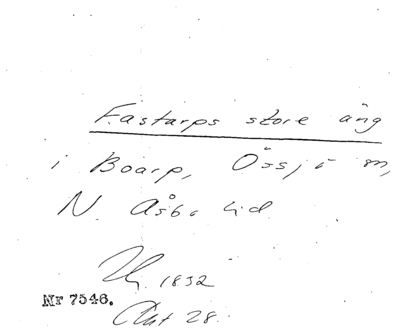 Fastarps store äng
i Boarp, Össjö sn,
N. Åsbo hd
1832
Nr 7546.
Akt 28.